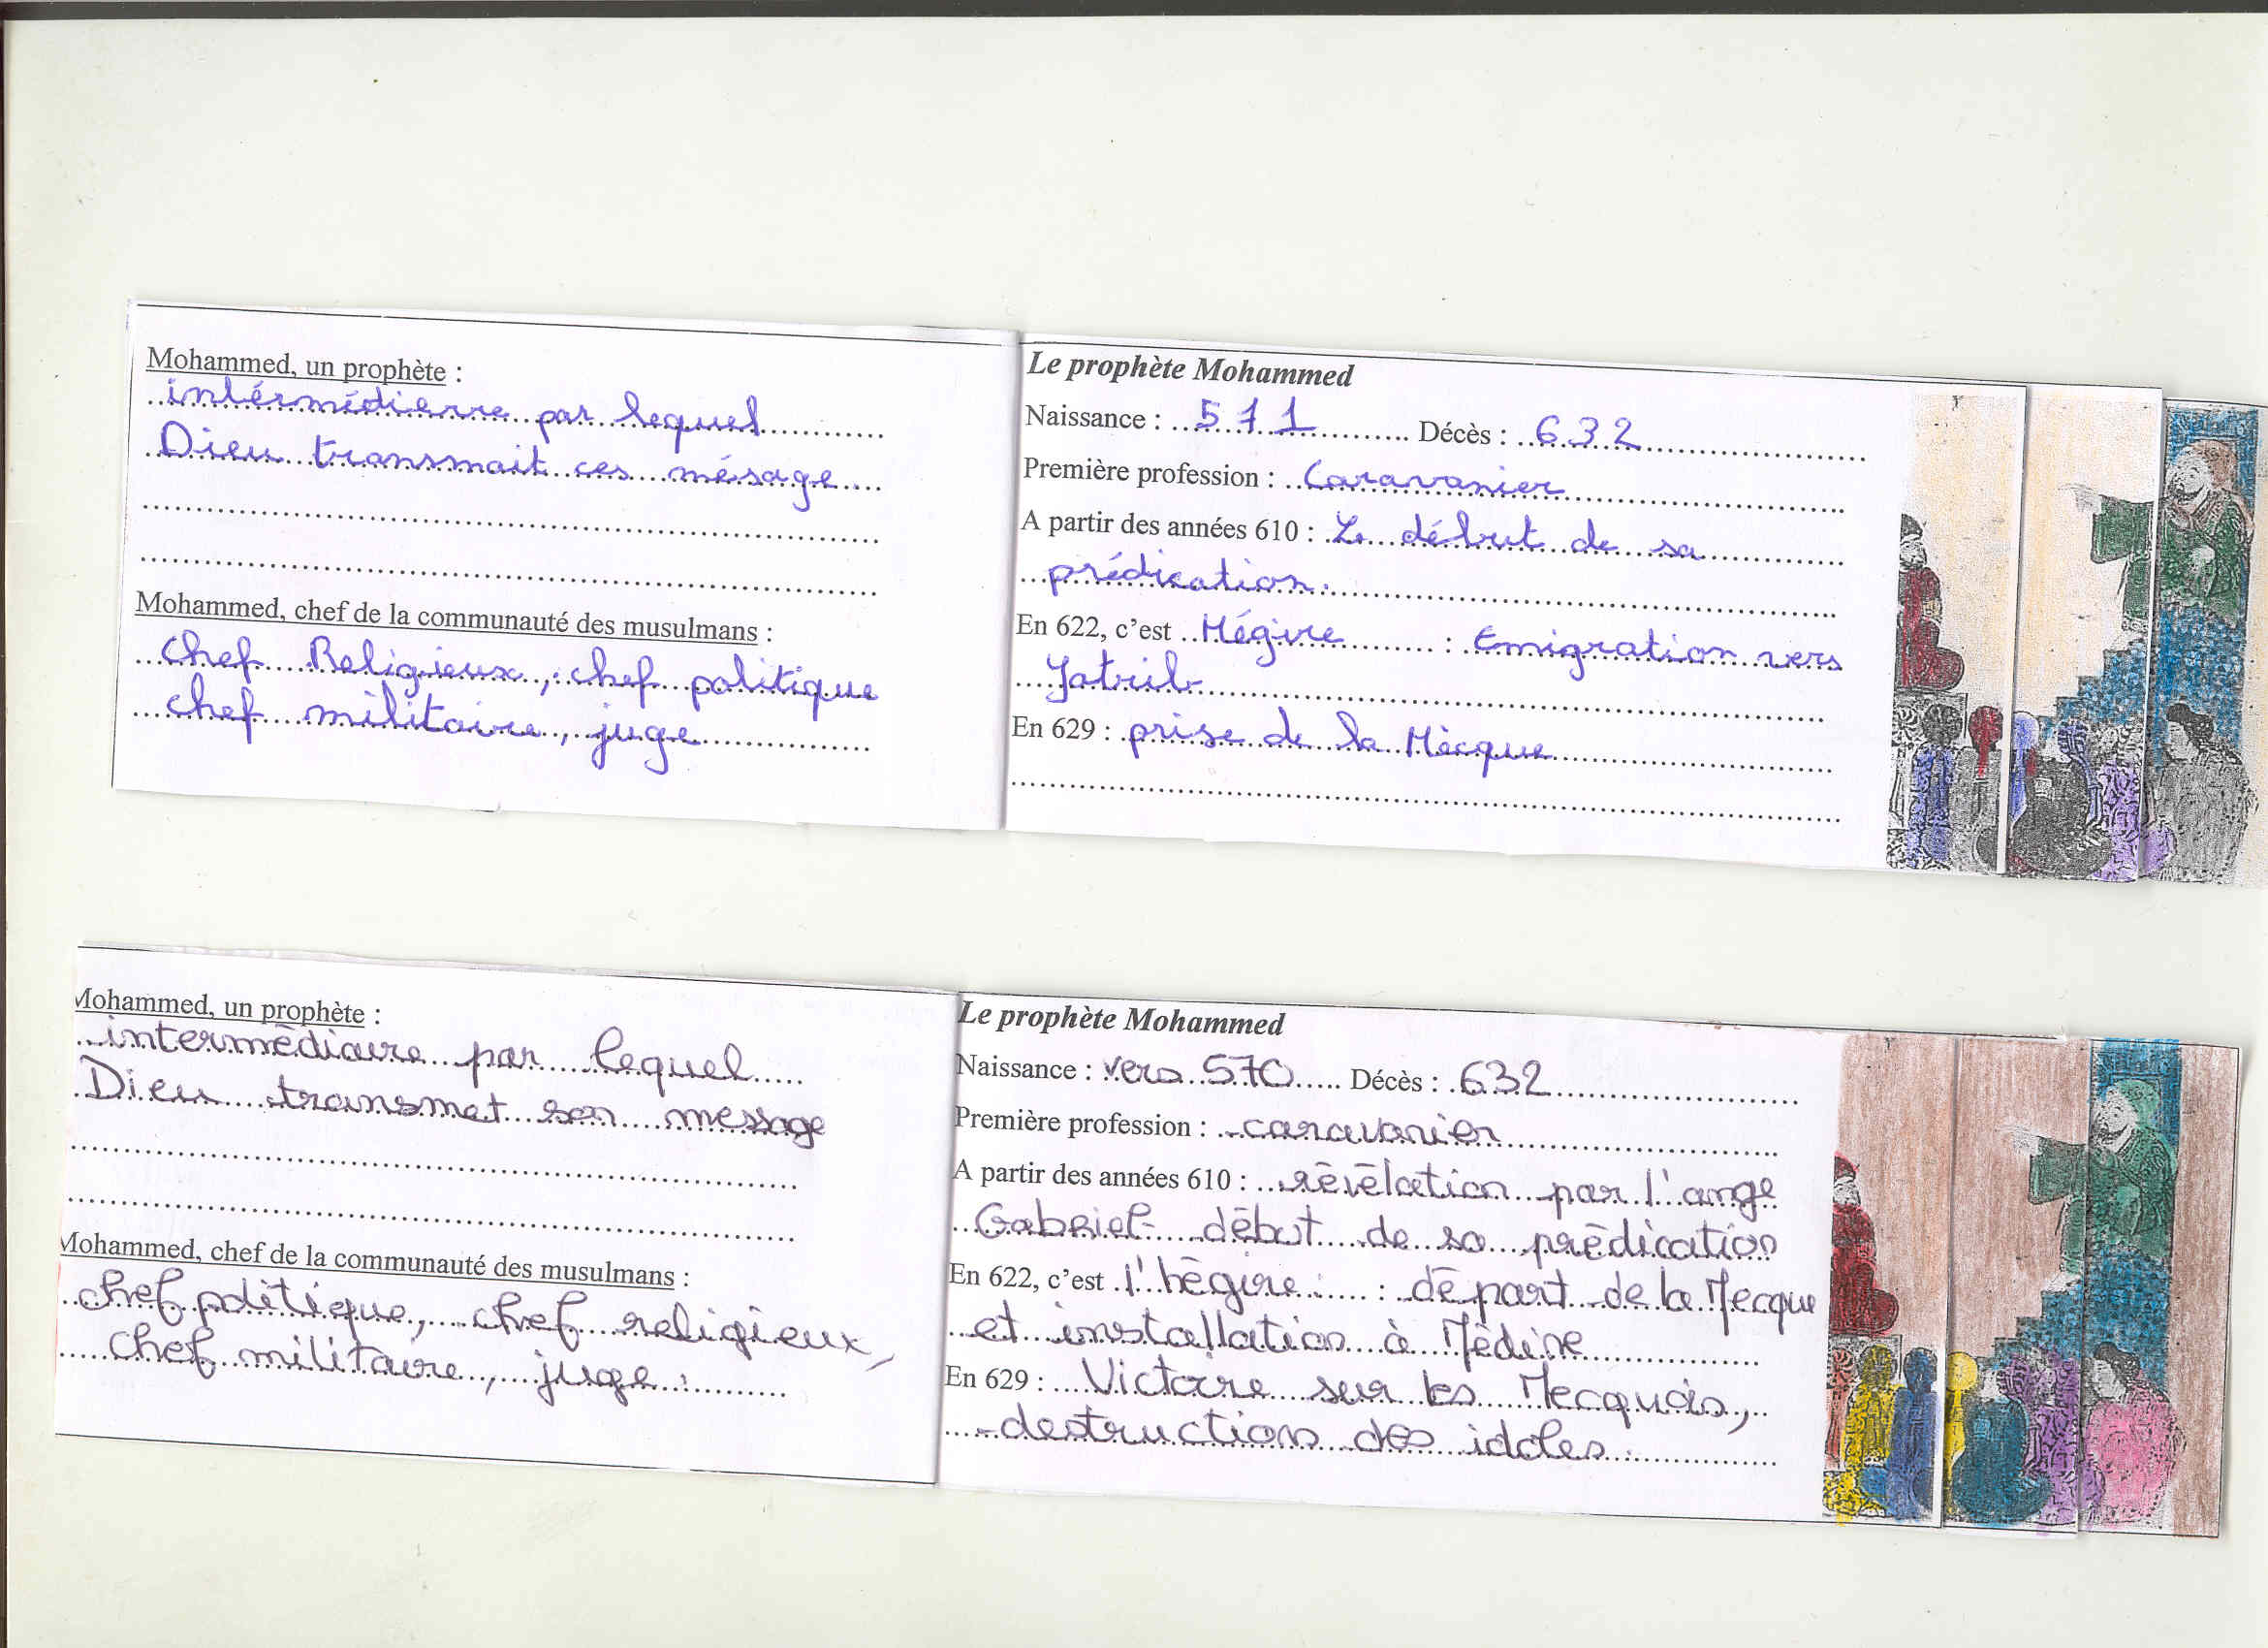 Mohammed, un prophète :
intérmédierre par lequel
Dieu transmait ces mésage
Mohammed, chef de la communauté des musulmans :
chef Religieux, chef politique
chef militaire, juge
Le prophète Mohammed
Naissance : 571 Décès : 632
Première profession : Caravanier
A partir des années 610 : Le début de sa
prédication.
En 622, c'est Hégire : Emigration vers
Yatrib
En 629 : prise de la Mècque
Mohammed, un prophète :
intermédiaire par lequel
Dieu transmet son message
Mohammed, chef de la communauté des musulmans :
chef politique, chef religieux,
chef militaire, juge.
Le prophète Mohammed
Naissance : vers 570 Décès : 632
Première profession : caravanier
A partir des années 610 : révélation par l'ange
Gabriel - début de sa prédication
En 622, c'est l'hégire : départ de la Mecque
et installation à Médine
En 629 : Victoire sur les Mecquois,
destruction des idoles.